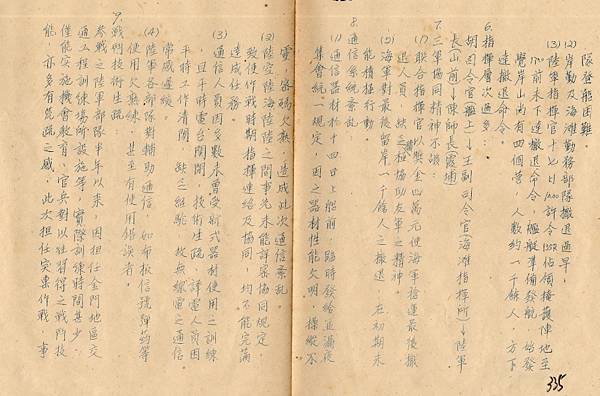 隊登艇困難。
(2)岸勤及海灘勤務部隊撤退過早。
(3)陸軍指揮官十七日1000許令佔領掩護陣地至
1700前未下達撤退命令，艦艇準備發航，始發
覺岸山尚有四個營，人數約一千餘人，方下
達撤退命令。
6.指揮層次過多：
胡司令官(艦上)↓王副司令官(海灘指揮所)↓陸軍
長(山前)↓陳師長(震埔)
7.三軍協同精神不夠：
(1)聯合指揮官以獎金四萬元使海軍搶運最後撤
退人員，缺乏極協助友軍之精神。
(2)海軍對最後留岸一千餘人之撤退，在初期未
能積極行動。
8.通信系統紊亂
(1)通信器材於十四日上船前，臨時發給並漏夜
集會統一規定，因之器材性能欠明，操縱不
靈，密碼欠熟，造成此次通信紊亂。
(2)陸空陸海陸陸之間事先未能詳盡協同規定，
致使作戰時期指揮連絡及協同，均不能完滿
達成任務。
(3)通信人員因多數未曾受新式器材使用之訓練
且平時電台閑閒，技術生疏，譯電人員因
平時工作清閒，缺乏經驗，故無線電之通信
常感遲緩。
(4)陸軍各部隊對輔助通信，如布板信號彈藥等
使用欠熟練，甚至有使用錯誤者。
9.戰鬥技術生疏：
參戰之陸軍部隊半年以來，因担任金門地區交
通工程訓練場所設施等，實際訓練時間甚少，
僅能實施機會教育，官兵對以往習得之戰鬥技
能，亦多有荒疏之感，此次担任突擊作戰，事
335